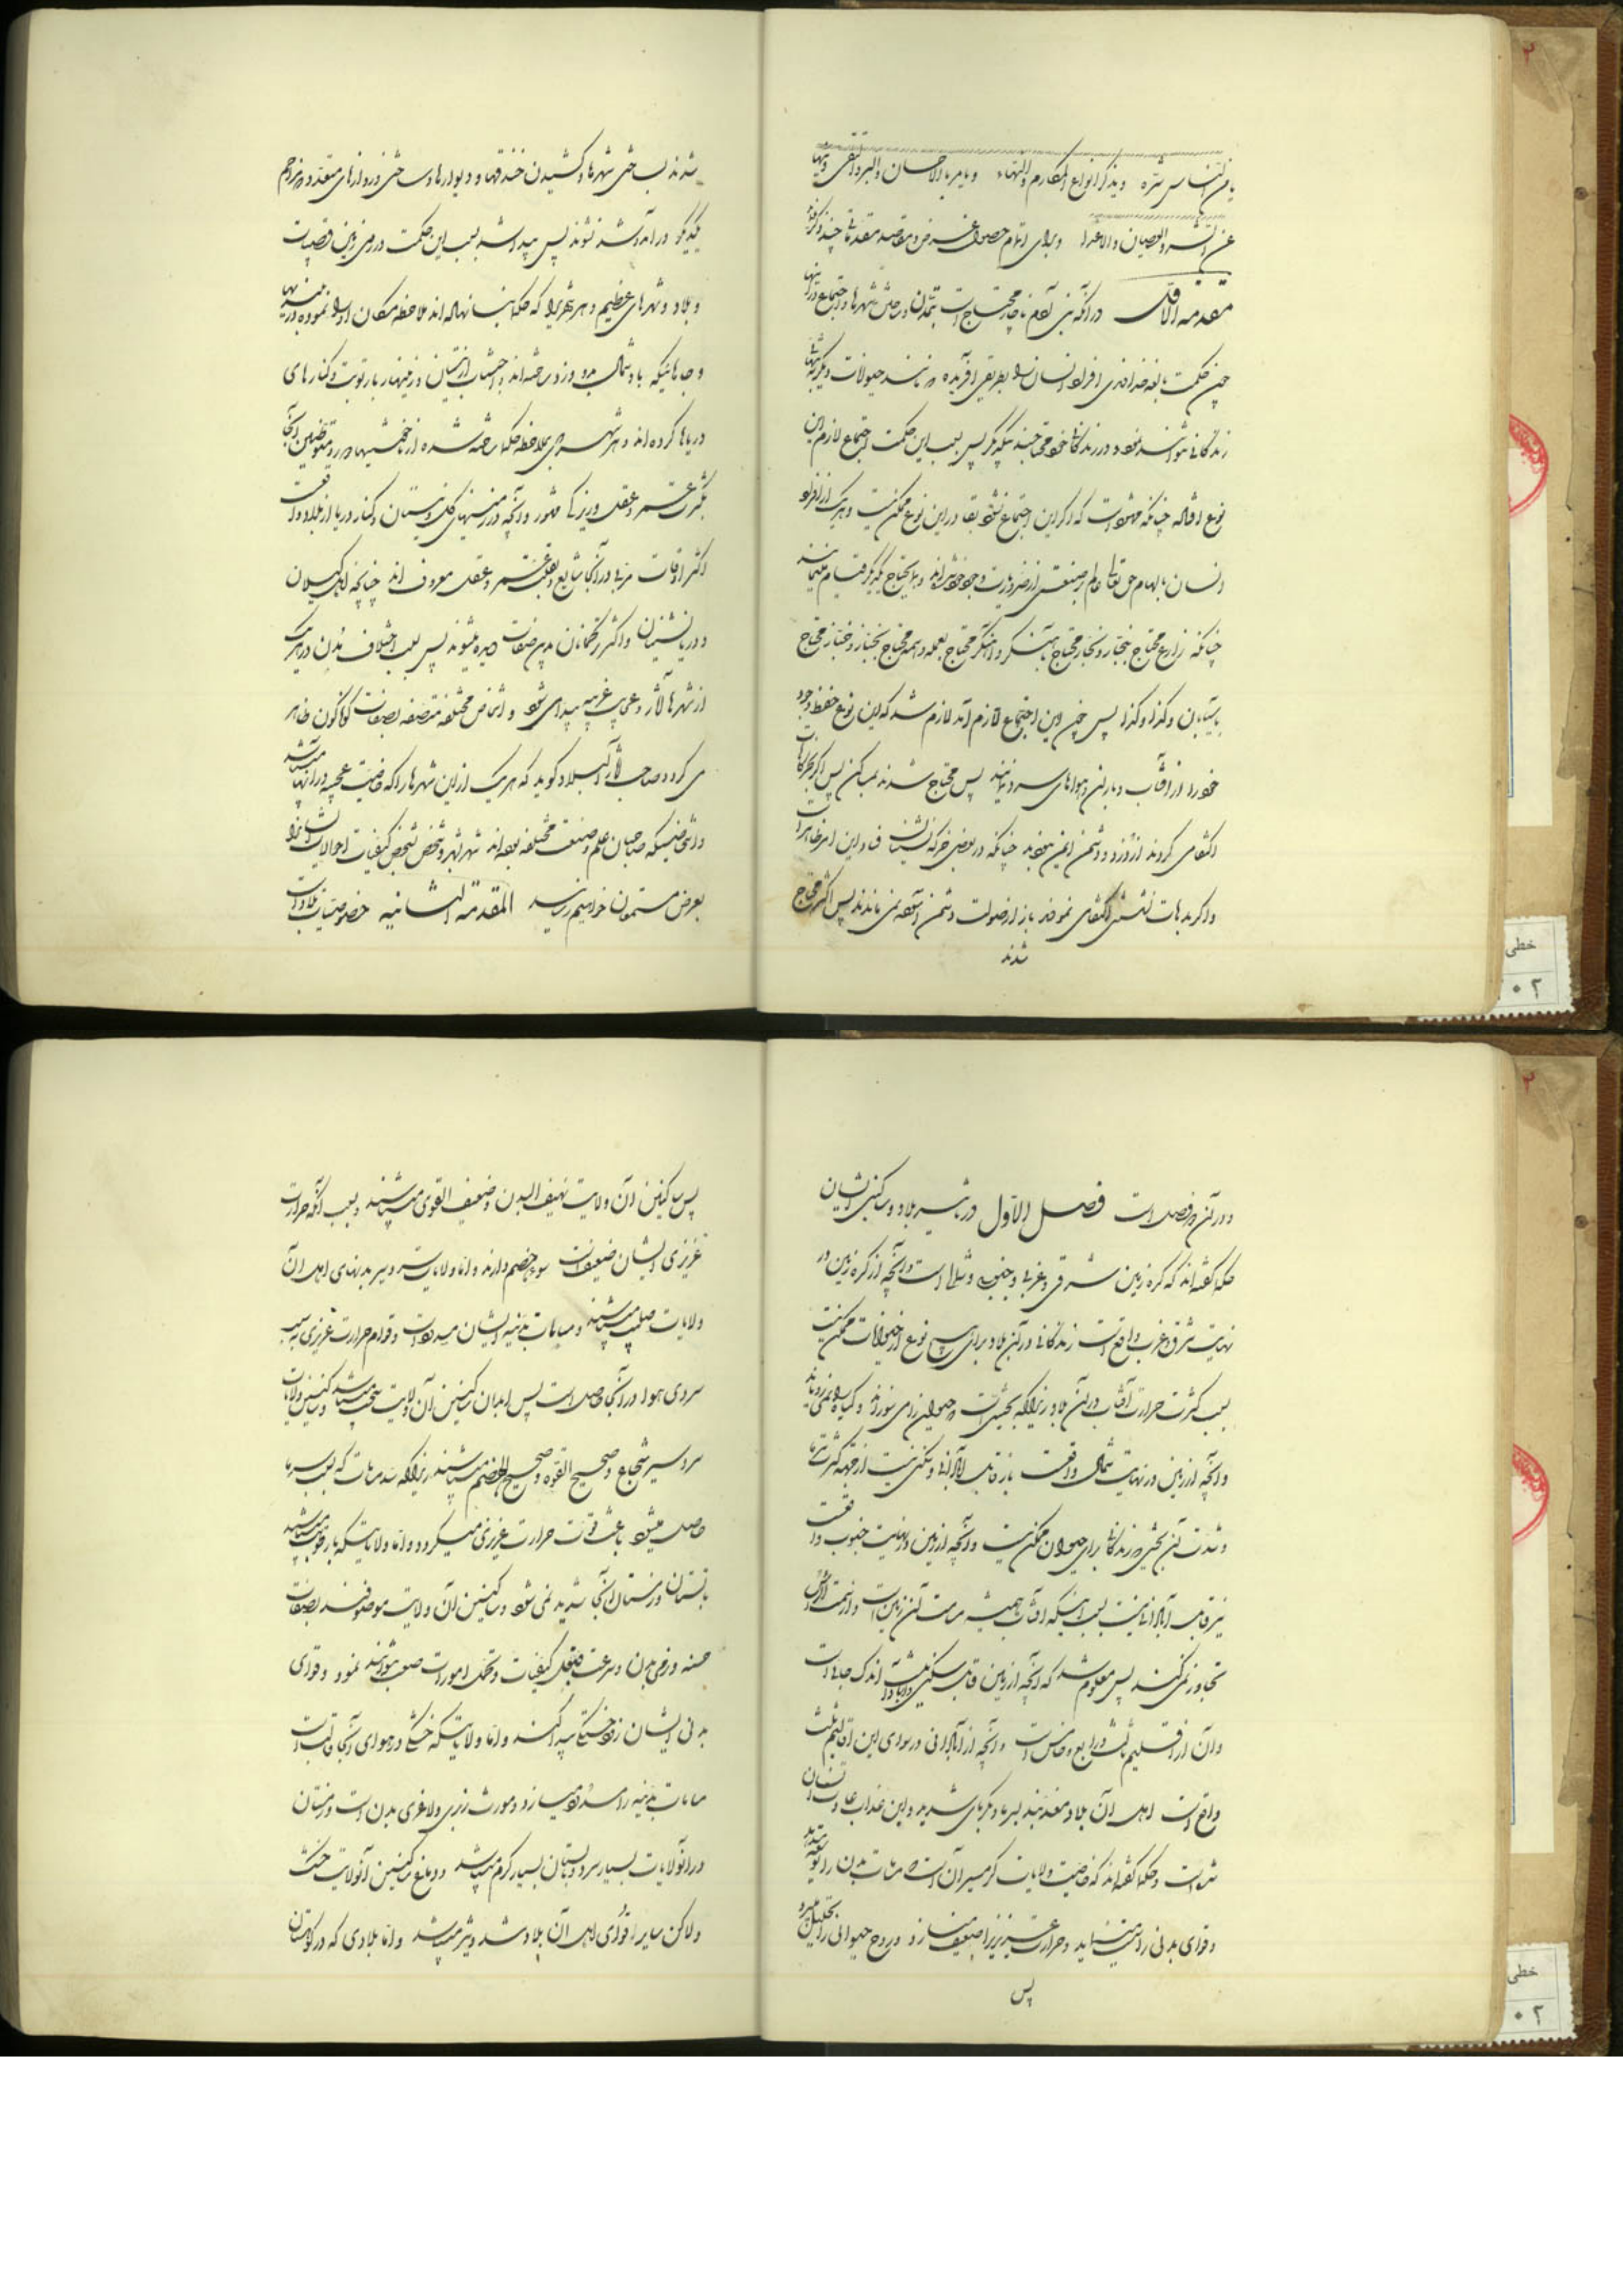 یا من
و یذکر انواع المکارم و النهاء و یامر بالاحسان والبر والتقی و ینها
عن الشر والعصیان والاعدا و برای اتمام حصول غرض و مقاصد مقدمه چند ذکر
مقدمه الاول در آنکه بنی آدم محتاج است بتمدن و ساختن شهرها و اجتماع در آنها
چون حکمت بالغه خداوندی افراد انسان را بطریقی آفریده که مانند حیوانات دیگر تنها
زندگانی نتوانند نمود و در زندگانی خود محتاجند بیکدیگر پس بسبب این حکمت اجتماع لازم این
نوع افتاده چنانکه مشهود است که اگر این اجتماع نشود بقا در این نوع ممکن نیست و هر یک از افراد
انسان بالهام حق تعالی عالم بصنعتی از ضروریات وجود خود شده اند و باحتیاج یکدیگر قیام مینمایند
چنانکه زارع محتاج بنجار و نجار محتاج بآهنگر و آهنگر محتاج بعمله و همه محتاج بخباز و خباز محتاج
بآسیابان و کذا و کذا پس چون این اجتماع لازم آمد لازم شد که این نوع حفظ وجود
خود را از آفتاب و باران و هواهای سرد نمایند پس محتاج شدند بمساکن پس اگر بخرگاهات
اکتفا می کردند از دزد و دشمن ایمن نبودند چنانکه در بعضی خرگه نشینان فساد این امر ظاهر است
و اگر بدهات نشستن اکتفا می نمودند باز از صولت دشمن آسوده نمی ماندند پس اکثر محتاج
شدند
شدند بساختن شهرها و کشیدن خندقها و دیوارها و ساختن دروازهای متعدد که مزاحم
یکدیگر در آمد و شد نشوند پس پیدا شد بسبب این حکمت در روی زمین قصبات
و بلاد و شهرهای عظیم و هر شهری را که حکما بنا نهاده اند ملاحظه مکان او را نموده در زمینهای
و جاهائیکه باد شمال می وزد ساخته اند و اجتناب از نیستان و زمینهای با رطوبت و کنارهای
دریاها کرده اند و هر شهری که بی ملاحظه حکما ساخته شده از خوشیها دور و متوطنین آنجا
بکثرت شر و عقل و زیرکی مشهور و آنچه در زمینهای گل و نیستان و کنار دریا از بلاد واقعست
اکثر اوقات مرض در آنجا شایع و بقلت فهم و عقل معروف اند چنانچه اهل گیلان
و دریانشینان و اکثر ترکمانان بدین صفات دیده میشوند پس بسبب اختلاف مدن در هر یک
از شهرها آثار و عجایب غریبه پیدا می شود و اشخاص مختلفه متصفه بصفات گوناگون ظاهر
می گردد و صاحب آثار البلاد گوید که هر یک از این شهرها را که خاصیت عجیبه در آنها میباشد
و اشخاصیکه صاحبان علم و صنعت مختلفه بوده اند شهر بشهر و شخص بشخص کیفیات احوالات ایشان را
بعرض مستمعان خواهیم رسانید المقدمة الثانیه خصوصیات بلاد است
و در آن دو فصل است فصل الاول در تاثیر بلاد و ساکنین ایشان
حکما گفته اند که کره زمین شرقی و غربی و جنوبی و شمالی است و آنچه از کره زمین در
نهایت شرق و غرب واقع است زندگانی در آن بلاد برای هیچ نوع از حیوانات ممکن نیست
بسبب کثرت حرارت آفتاب در آن بلاد زیراکه بحدیست که حیوان را می سوزاند و گیاه را نمی رویاند
و آنچه از زمین در نهایت شمال واقعست باز قابل آبادانی و سکنی نیست از جهة کثرت سرما
و شدت آن بحدی که زندگانی برای حیوان ممکن نیست و آنچه از زمین در نهایت جنوب واقعست
نیز قابل آبادانی نیست بسبب اینکه آفتاب همیشه مسامت آن زمین است و از سمت الراس
تجاوز نمی کند پس معلوم شد که آنچه از زمین قابل سکنی و آبادانیست اندک جاها است
و آن از اقلیم ثالث و رابع و خامس است و آنچه از آبادانی در سوای این اقالیم ثلث
واقع است اهل آن بلاد معذبند بسرما و گرمای شدید و این عذاب عادت ایشان
شده است و حکما گفته اند که خاصیت ولایات گرمسیر آن است که مسامات بدن را
و قوای بدنی را سست مینماید و حرارت غریزیرا ضعیف میسازد و روح حیوانی را بتحلیل میبرد
پس
پس ساکنین آن ولایت نحیف البدن و ضعیف القوی میباشند و بسبب آنکه حرارت
غریزی ایشان ضعیف است سوء هضم دارند و اما ولایات سردسیر بدنهای اهل آن
ولایات صلب میباشند و مسامات بدنیه ایشان مسدود است و قوام حرارت غریزی بسبب
سردی هوا در آنجا حاصل است پس ابدان ساکنین آن ولایت سخت میباشد و ساکنین ولایات
سردسیر شجاع و صحیح القوه و صحیح الهضم میباشند زیراکه سد مسامات که بسبب سرما
حاصل میشود باعث قوت حرارت غریزی میگردد و اما ولایتیکه با رطوبت میباشد
تابستان و زمستان آنجا شدید نمی شود و ساکنین آن ولایت موصوفند بصفات
حسنه و نرمی بدن و سرعت قبول کیفیات و تحمل امورات صعب نتوانند نمود و قوای
بدنی ایشان زود خستگی پیدا کنند و اما ولایتیکه خشکی در هوای آنجا غالب است
مسامات بدنیه را مسدود میسازد و مورث زبری و لاغری بدن است و زمستان
در آنولایات بسیار سرد و تابستان بسیار گرم میباشد و دماغ ساکنین آنولایت خشک
ولاکن سایر قوای اهل آن بلاد اشد و بیشتر میباشد و اما بلادی که در کوهستان
خطی
۰۲